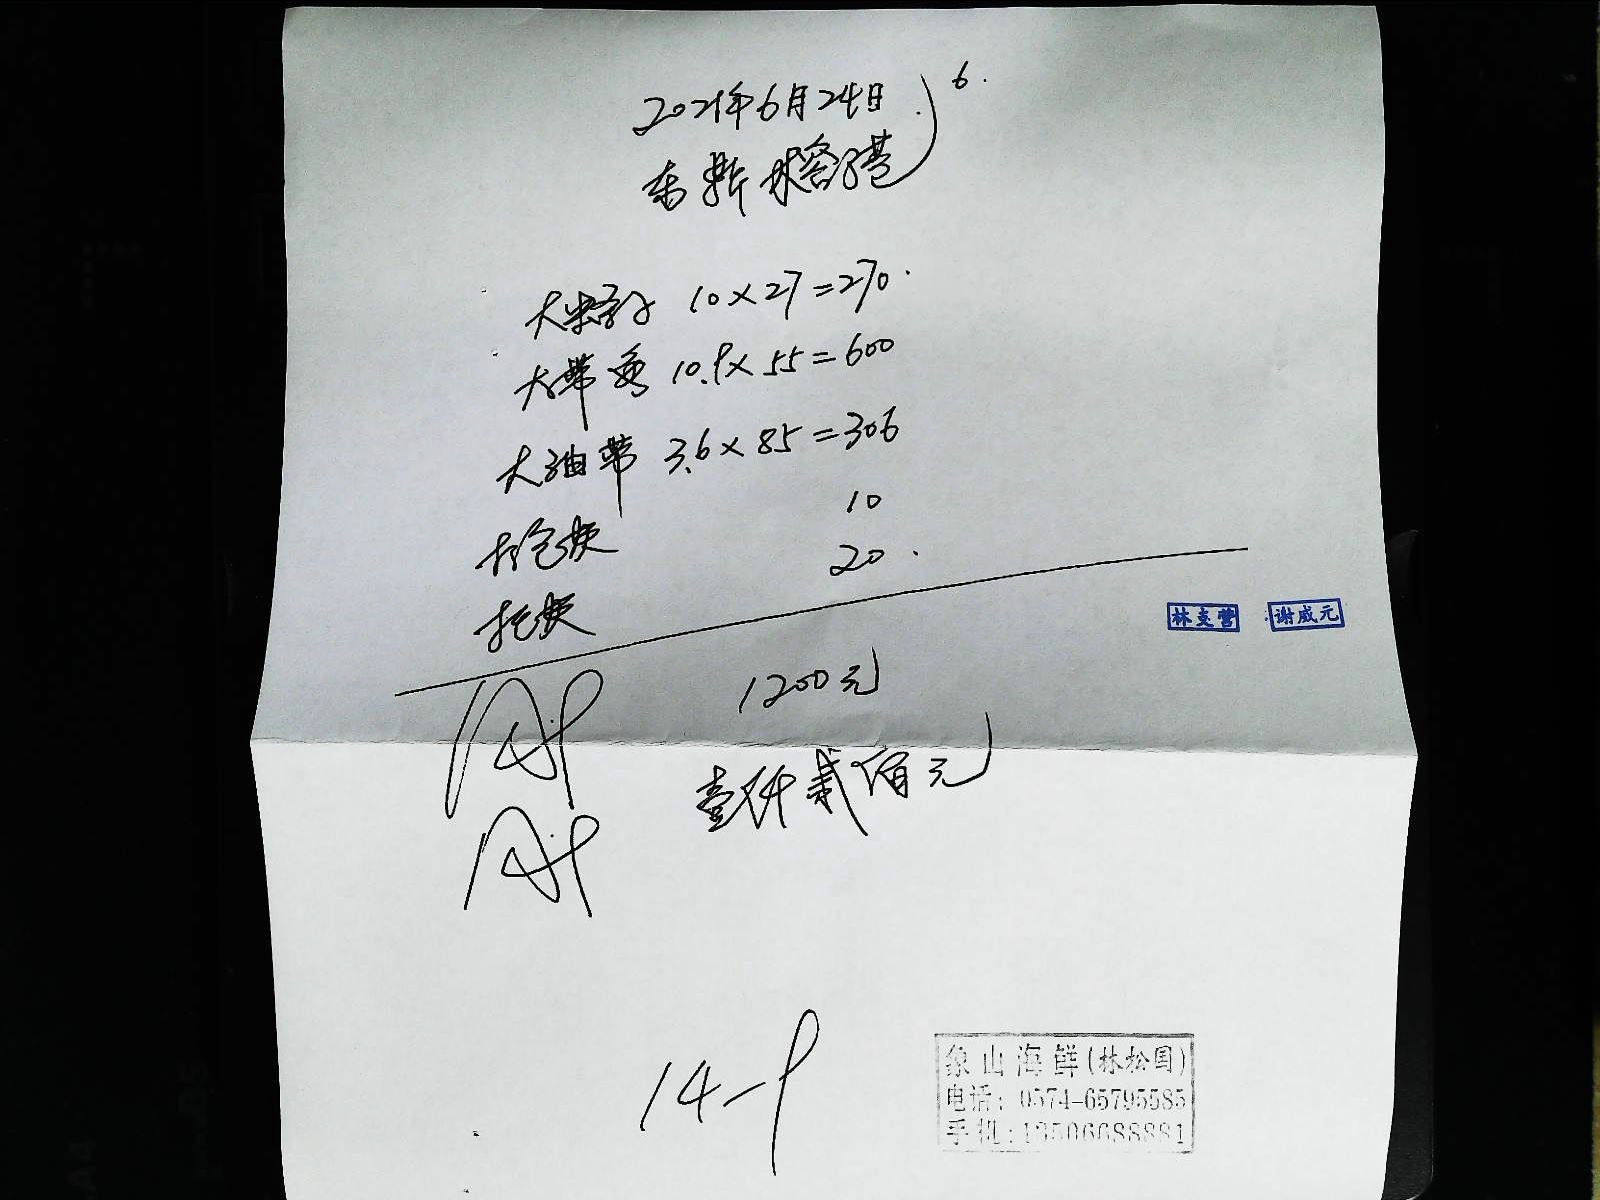 2021年6月24日 6.
大 10×27=270
大带鱼 10.9×55=600
大油带 3.6×85=306
打包费 10
托费 20
林 营 谢威元
1200元
壹仟贰佰元
14-9
象山海鲜(林松国)
电话: 0574-65795585
手机:13506688881